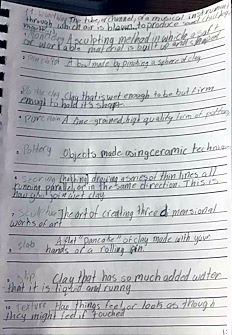 The tube, or channel, of a musical instrument
through which air is blown to produce sound
A sculpting method in which a soft or
workable material is built up and shaped
A bowl made by pinching a sphere of clay
clay that is wet enough to be but firm
enough to hold it's shape
A fine grained, high quality form of pottery
Pottery Objects made using ceramic
Scoring drawing a series of thin lines all
running parallel, or in the same direction. This is
how you join wet clay
The art of creating three dimensional
works of art
slab A flat "pancake" of clay made with your
hands or a rolling pin.
slip Clay that has so much added water
that it is liquid and runny
Texture things feel, or look as though
they might feel if touched